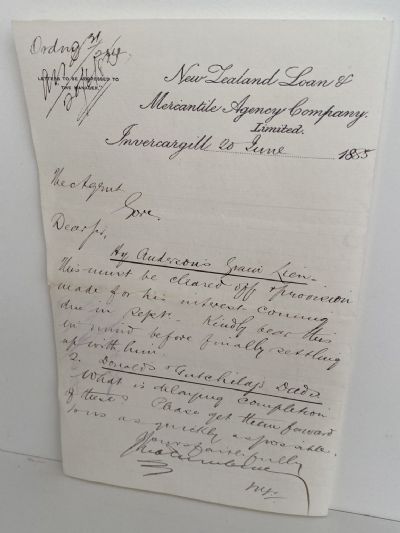 Ordny
LETTERS TO BE ADDRESSED TO
"THE MANAGER."
New Zealand Loan &
Mercantile Agency Company.
Limited.
Invercargill 20 June 1885
The Agent
Gore.
Dear Sir,
Hy Anderson's Grain Lien.
This must be cleared off & provision
made for his interest coming
due in Sept. Kindly bear this
in mind before finally settling
up with him.
2. Donald's & Gutchlag's Deeds
What is delaying completion
of these? Please get them forward
to us as quickly as possible.
Yours faithfully